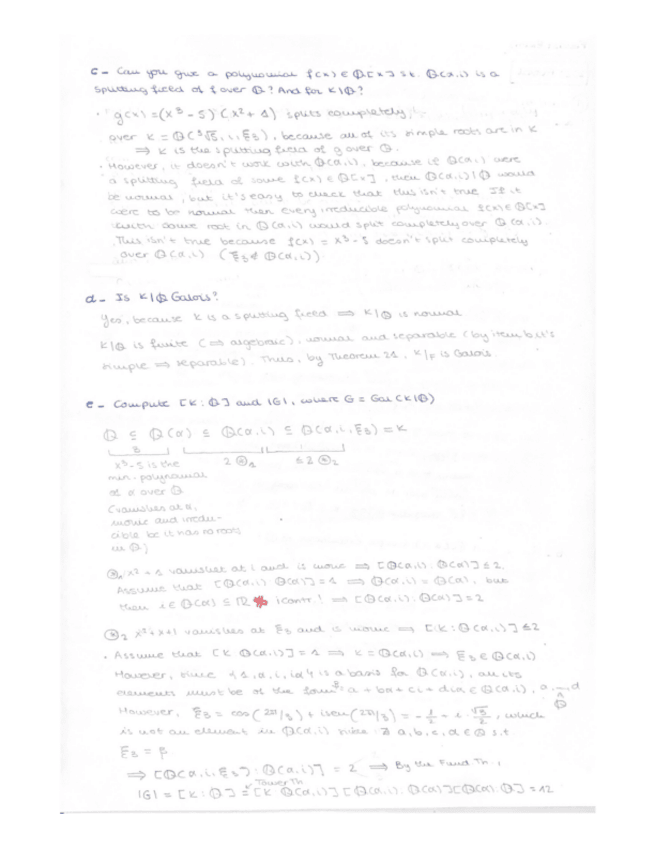 c - Can you give a polynomial f(x) ∈ Q[x] s.t. Q(α,i) is a
splitting field of f over Q? And for K|Q?
· g(x) = (x³ - 5)(x² + 1) splits completely,
over K = Q(³√5, i, ξ₃), because all of its simple roots are in K
⇒ K is the splitting field of g over Q.
· However, it doesn't work with Q(α,i), because if Q(α,i) were
a splitting field of some f(x) ∈ Q[x], then Q(α,i)|Q would
be normal, but it's easy to check that this isn't true. If it
were to be normal then every irreducible polynomial f(x) ∈ Q[x]
with some root in Q(α,i) would split completely over Q(α,i).
This isn't true because f(x) = x³ - 5 doesn't split completely
over Q(α,i) (ξ₃ ∉ Q(α,i))
d - Is K|Q Galois?
Yes, because K is a splitting field ⇒ K|Q is normal
K|Q is finite (⇒ algebraic), normal and separable (by item b, it's
simple ⇒ separable). Thus, by Theorem 21, K/F is Galois
e - Compute [K:Q] and |G|, where G = Gal(K|Q)
Q ⊆ Q(α) ⊆ Q(α,i) ⊆ Q(α,i,ξ₃) = K
3 2 ⊛₁ ≤2 ⊛₂
x³-5 is the
min. polynomial
of α over Q
(vanishes at α,
monic and irredu-
cible bc it has no roots
in Q)
⊛₁ x² + 1 vanishes at i and is monic ⇒ [Q(α,i):Q(α)] ≤ 2.
Assume that [Q(α,i):Q(α)] = 1 ⇒ Q(α,i) = Q(α), but
then i ∈ Q(α) ⊆ ℝ (contr.! ⇒ [Q(α,i):Q(α)] = 2
⊛₂ x²+x+1 vanishes at ξ₃ and is monic ⇒ [K:Q(α,i)] ≤ 2
· Assume that [K:Q(α,i)] = 1 ⇒ K = Q(α,i) ⇒ ξ₃ ∈ Q(α,i)
However, since {1, α, i, iα} is a basis for Q(α,i), all its
elements must be of the form a + bα + ci + diα ∈ Q(α,i), a,...,d
∈ Q
However, ξ₃ = cos(2π/3) + isen(2π/3) = -1/2 + i √3/2, which
is not an element in Q(α,i) since ∄ a,b,c,d ∈ Q s.t
ξ₃ = β
⇒ [Q(α,i,ξ₃):Q(α,i)] = 2 ⇒ By the Fund. Th.,
Tower Th
|G| = [K:Q] = [K:Q(α,i)][Q(α,i):Q(α)][Q(α):Q] = 12